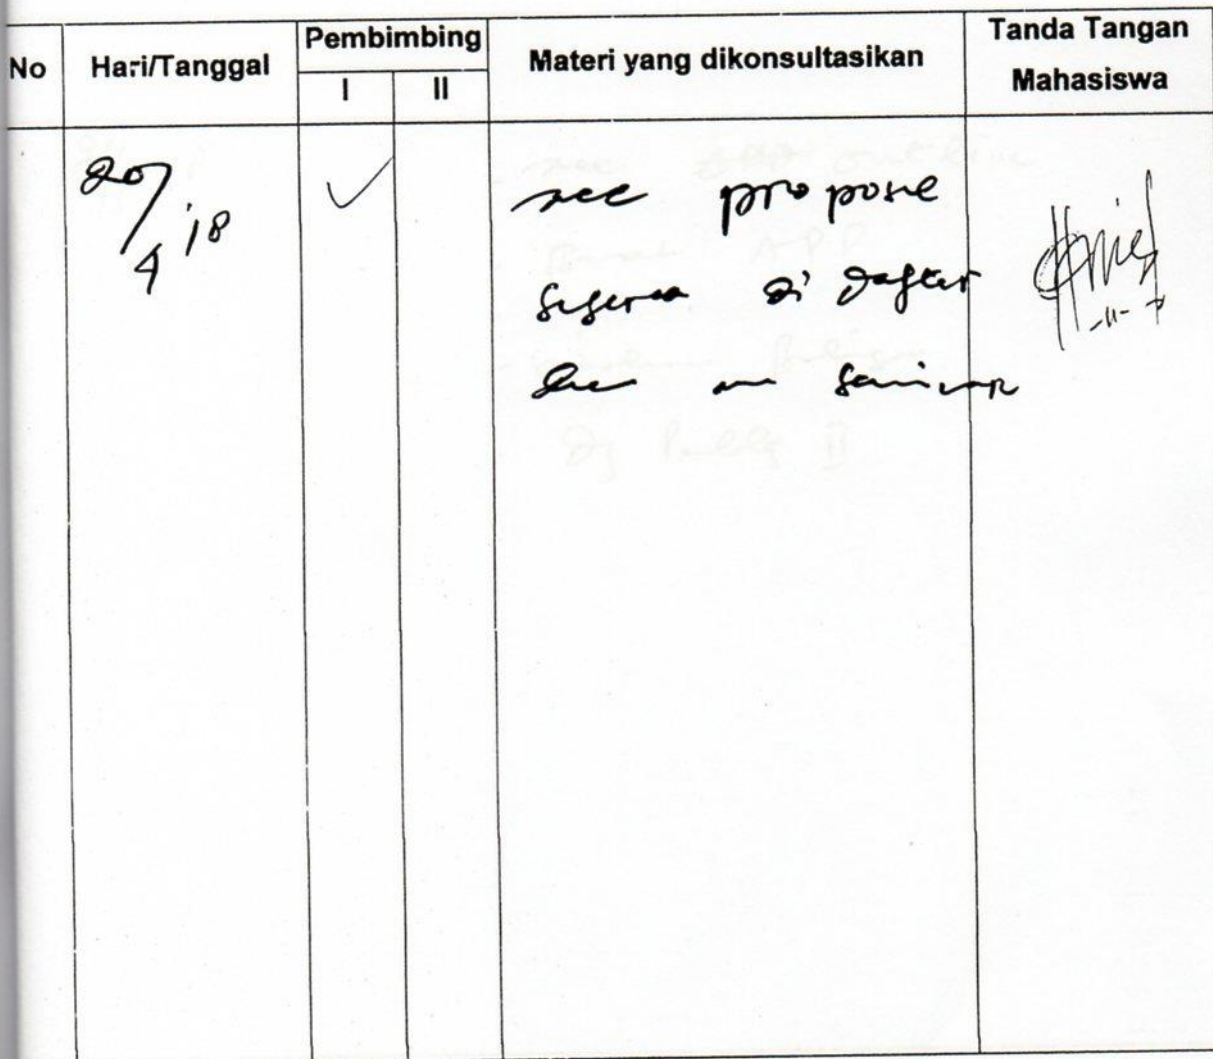 No Hari/Tanggal Pembimbing Materi yang dikonsultasikan Tanda Tangan Mahasiswa
I II
20/4 '18 ✓ acc propose
segera di daftar
seminar